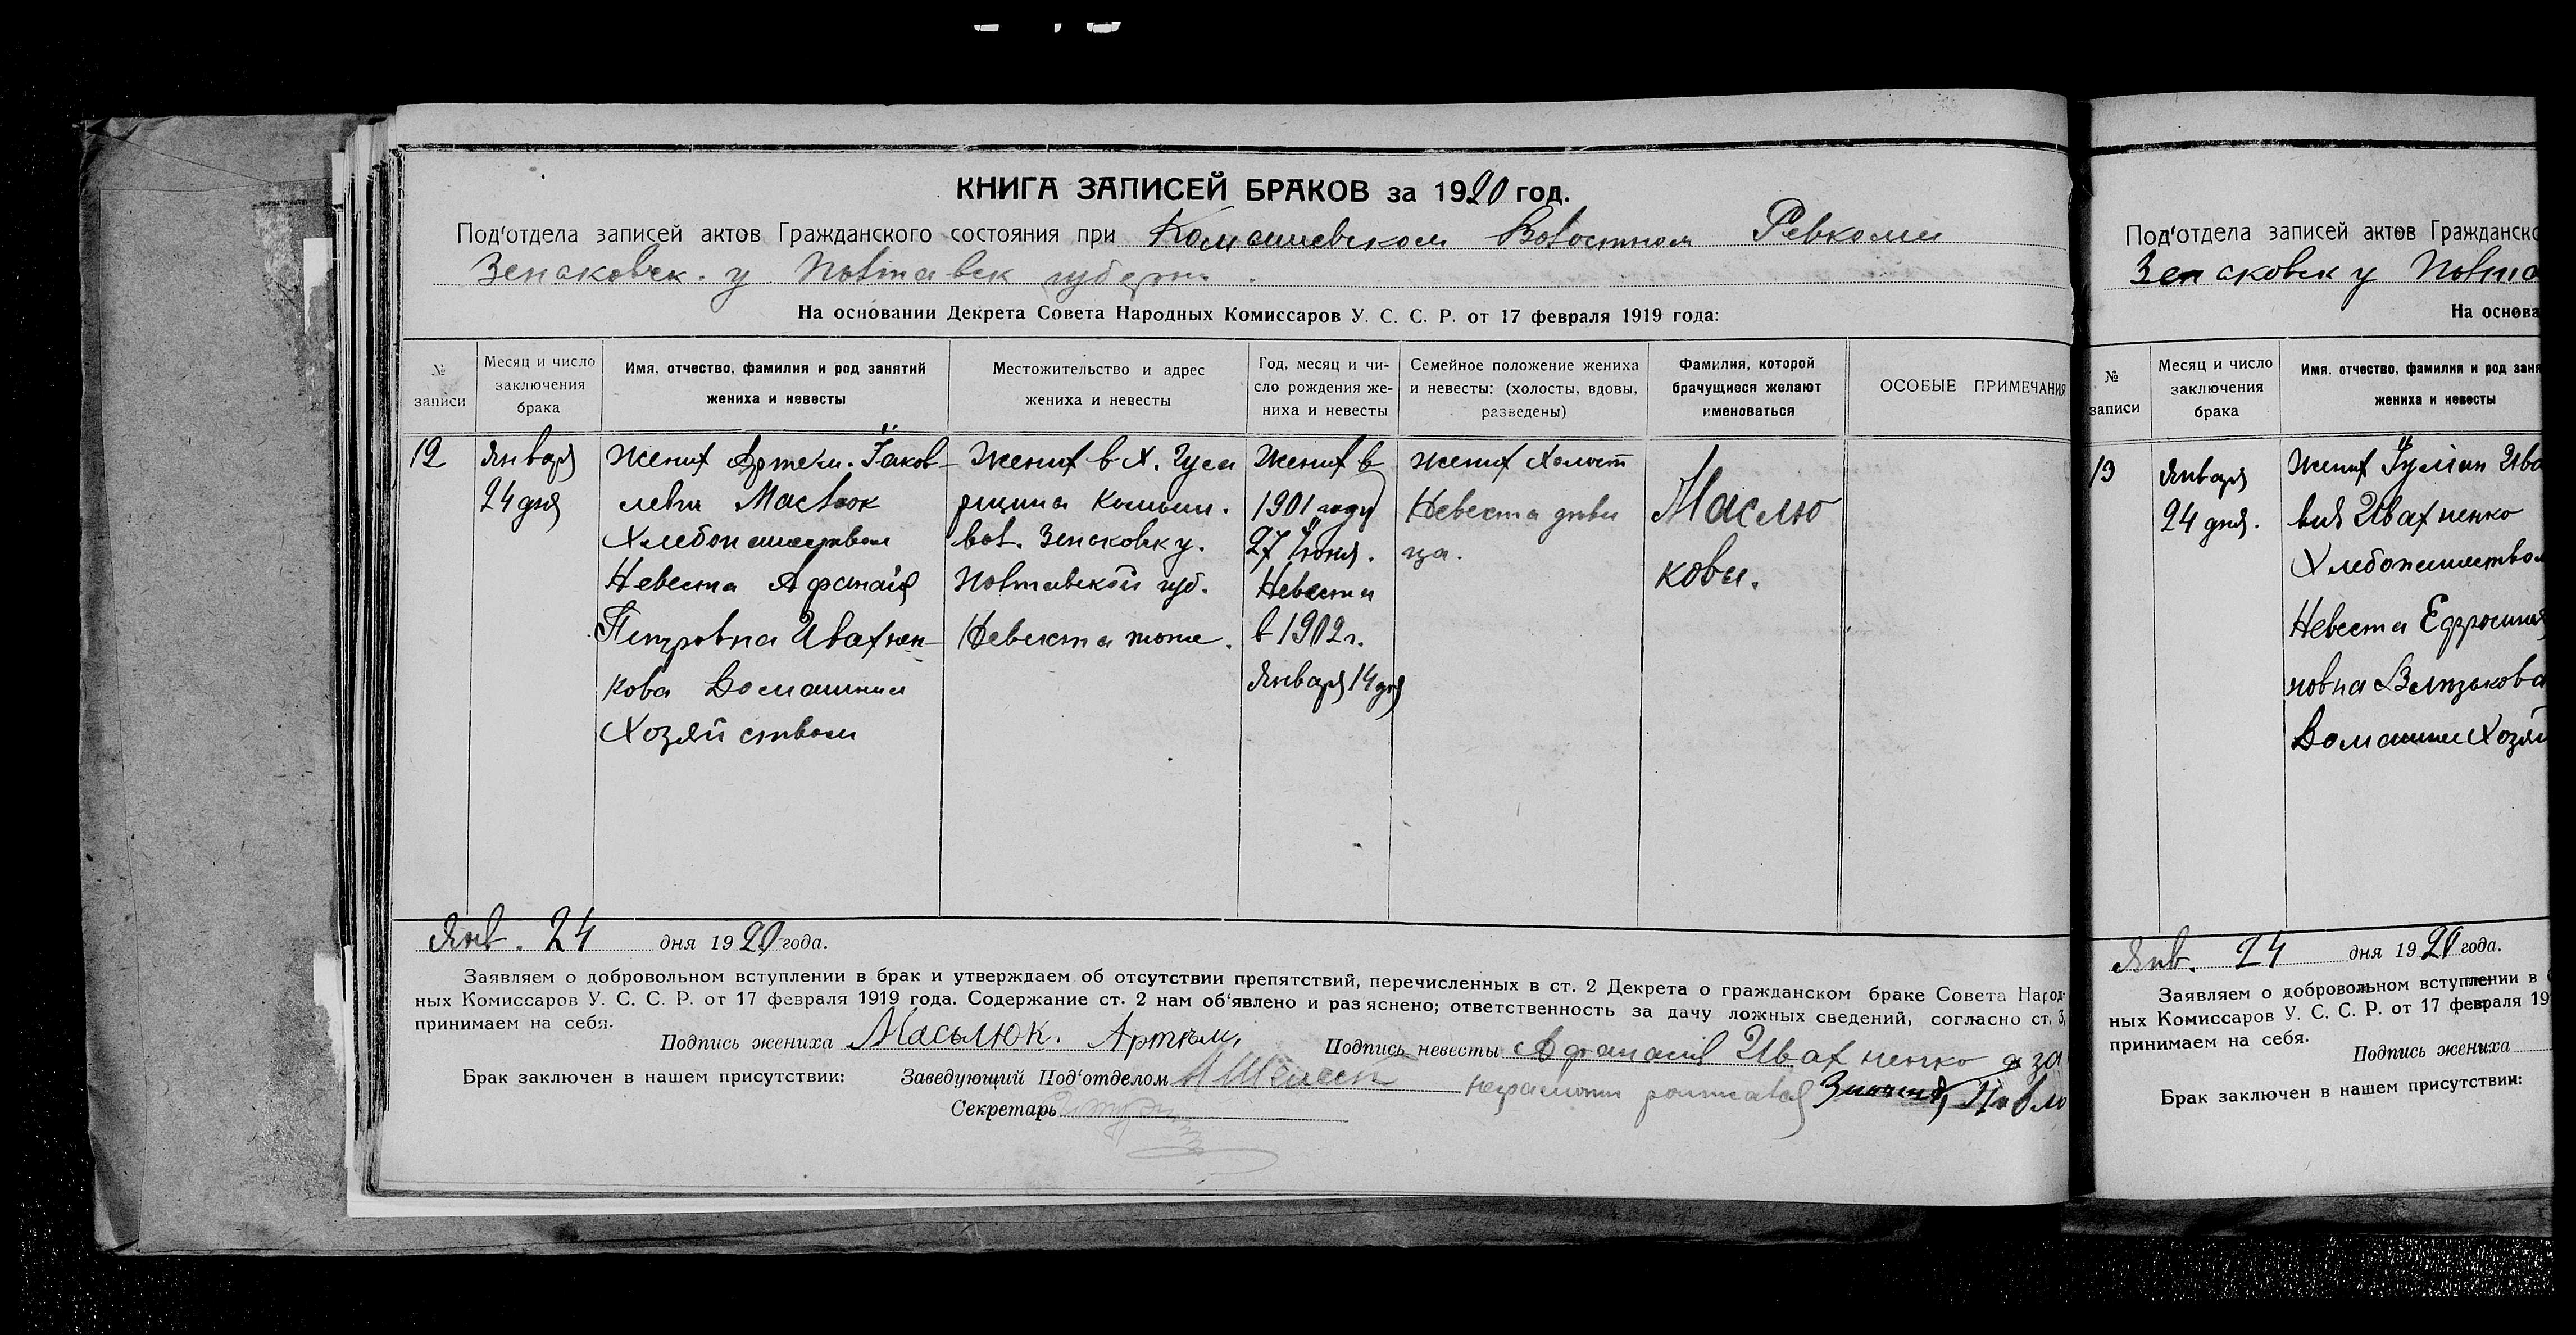 КНИГА ЗАПИСЕЙ БРАКОВ за 1920 год.
Под'отдела записей актов Гражданского состояния при Комышевском Волостном Ревкоми
Зеньковск. у Полтавск губерн.
На основании Декрета Совета Народных Комиссаров У. С. С. Р. от 17 февраля 1919 года:
№ записи
Месяц и число заключения брака
Имя, отчество, фамилия и род занятий жениха и невесты
Местожительство и адрес жениха и невесты
Год, месяц и число рождения жениха и невесты
Семейное положение жениха и невесты: (холосты, вдовы, разведены)
Фамилия, которой брачущиеся желают именоваться
ОСОБЫЕ ПРИМЕЧАНИЯ
12
Января
24 дня
Жених Артем. Iаков-
левич Маслюк
Хлебопашеством
Невеста Афанасiя
Петровна Ивахнен-
кова Домашним
Хозяйством
Жених в х. Гуса
рщина Комыш.
вол. Зеньковск у.
Полтавской губ.
Невеста тоже.
Жених в
1901 году
27 Iюня.
Невеста
в 1902 г.
Января 14 дня
Жених Холост
Невеста деви
ца.
Маслю
ковы.
Янв. 24 дня 1920 года.
Заявляем о добровольном вступлении в брак и утверждаем об отсутствии препятствий, перечисленных в ст. 2 Декрета о гражданском браке Совета Народ-
ных Комиссаров У. С. С. Р. от 17 февраля 1919 года. Содержание ст. 2 нам об'явлено и раз яснено; ответственность за дачу ложных сведений, согласно ст. 3,
принимаем на себя.
Подпись жениха Масьлюк. Артем,
Подпись невесты Афанасiя Ивахненко а за
Брак заключен в нашем присутствии: Заведующий Под'отделом Шелест
неграмотн росписался Павло
Секретарь
Под'отдела записей актов Гражданско
Зеньковск у Полта
На основа
№ записи
Месяц и число заключения брака
Имя. отчество, фамилия и род заня
жениха и невесты
13
Января
24 дня.
Жених Iулiан Ива
вич Ивахненко
Хлебопашеством
Невеста Ефросиния
новна
Домашним Хозяй
Янв. 24 дня 1920 года.
Заявляем о добровольном вступлении в
ных Комиссаров У. С. С. Р. от 17 февраля 19
принимаем на себя.
Подпись жениха
Брак заключен в нашем присутствии: